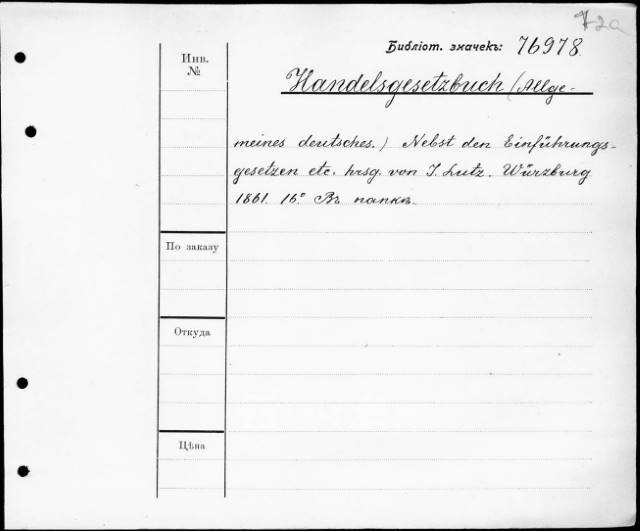 72a
Библіот. значекъ: 76978.
Инв.
№
Handelsgesetzbuch (Allge-
meines deutsches.) Nebst den Einführungs-
gesetzen etc. hrsg. von J. Lutz. Würzburg
1861. 16.° Въ папкѣ.
По заказу
Откуда
Цѣна